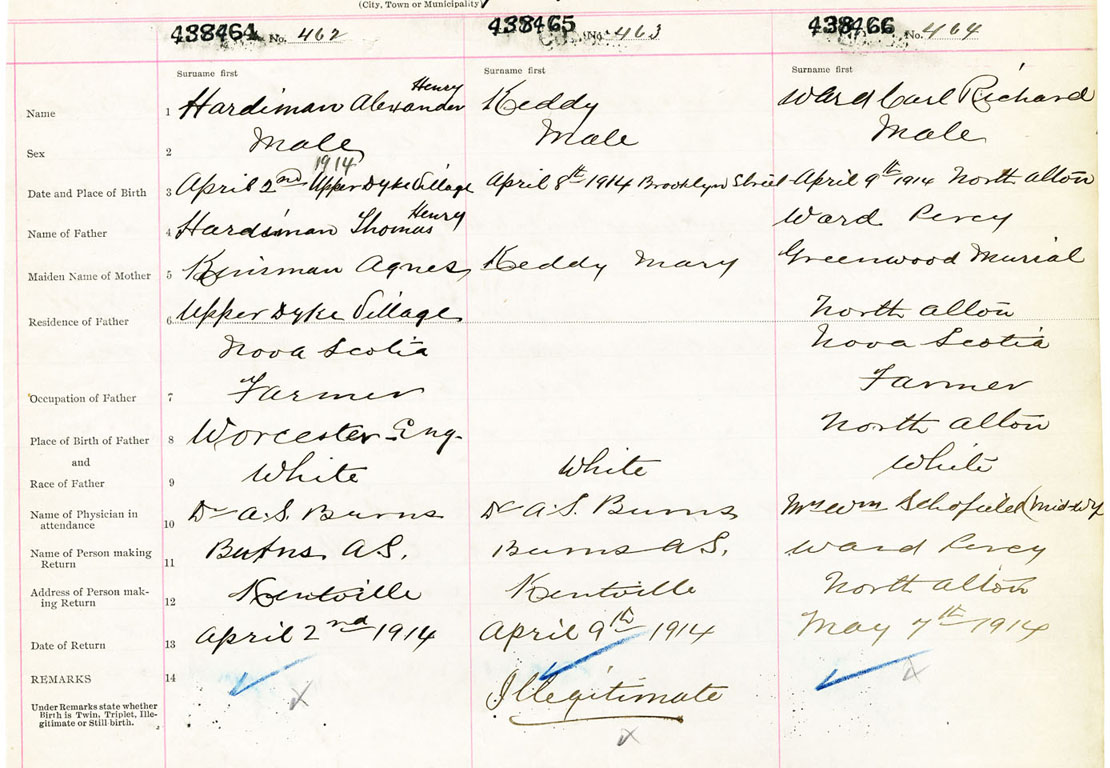 (City, Town or Municipality)
438464 No. 462 438465 No. 463 438466 No. 464
Surname first Surname first Surname first
Henry
Name 1 Hardiman Alexander Keddy Ward Carl Richard
Sex 2 Male Male Male
1914
Date and Place of Birth 3 April 2nd Upper Dyke Village April 8th 1914 Brooklyn Street April 9th 1914 North Alton
Henry
Name of Father 4 Hardiman Thomas Ward Percy
Maiden Name of Mother 5 Kinsman Agnes Keddy Mary Greenwood Murial
Residence of Father 6 Upper Dyke Village North Alton
Nova Scotia Nova Scotia
Occupation of Father 7 Farmer Farmer
Place of Birth of Father 8 Worcester Eng. North Alton
and
Race of Father 9 White White White
Name of Physician in
attendance 10 Dr A.S. Burns Dr A.S. Burns Mrs Wm Schofield (Mid-wf
Name of Person making
Return 11 Burns A.S. Burns A.S. Ward Percy
Address of Person mak-
ing Return 12 Kentville Kentville North Alton
Date of Return 13 April 2nd 1914 April 9th 1914 May 7th 1914
REMARKS 14 Illegitimate
Under Remarks state whether
Birth is Twin, Triplet, Ille-
gitimate or Still-birth.